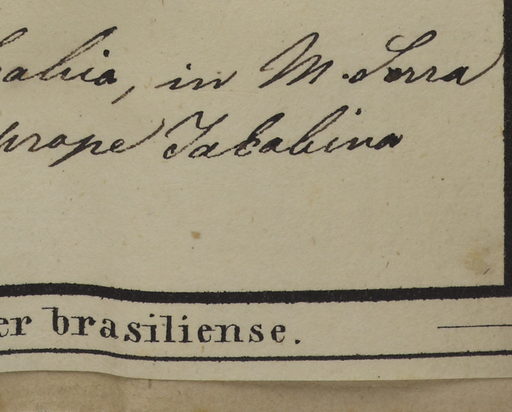 Bahia, in M. Serra
prope Jacobina
er brasiliense.